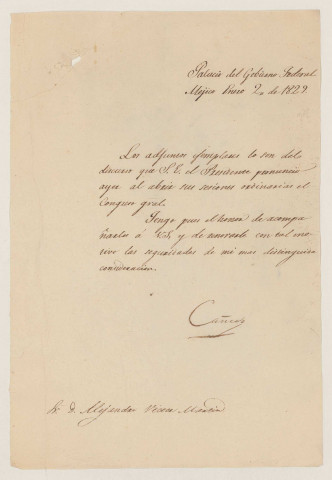 Palacio del Gobierno Federal
Mejico Enero 2, de 1829.
Los adjuntos ejemplares lo son del
discurso que S. E. el Presidente pronunció
ayer al abrir sus sesiones ordinarias el
Congreso gral.
Tengo pues el honor de acompa
ñarlos á V.S. y de renovarle con tal mo
tivo las seguridades de mi mas distinguida
consideracion.
Cañedo
Sr. D. Alejandro